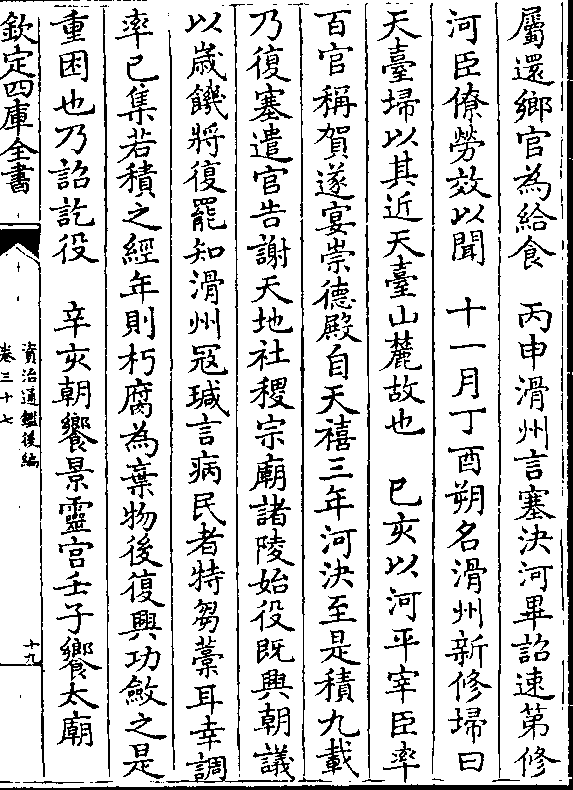 屬還鄉官為給食　丙申滑州言塞決河畢詔速第修
河臣僚勞效以聞　十一月丁酉朔名滑州新修埽曰
天臺埽以其近天臺山麓故也　己亥以河平宰臣率
百官稱賀遂宴崇德殿自天禧三年河決至是積九載
乃復塞遣官告謝天地社稷宗廟諸陵始役既興朝議
以歲饑將復罷知滑州寇瑊言病民者特芻藁耳幸調
率已集若積之經年則朽腐為棄物後復興功斂之是
重困也乃詔訖役　辛亥朝饗景靈宮壬子饗太廟
欽定四庫全書
資治通鑑後編
卷三十七
十九